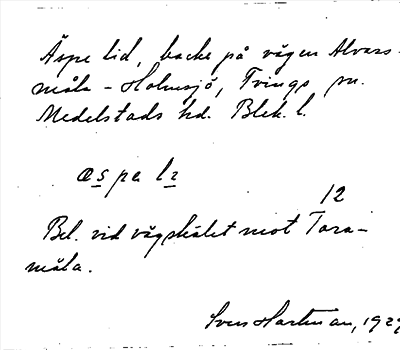 Äspe lid, backe på vägen Alvars-
måla - Holmsjö, Tvings sn.
Medelstads hd. Blek. l.
æspe lɪ
12
Bel. vid vägskälet mot Tara-
måla.
Sven Hartman, 1929